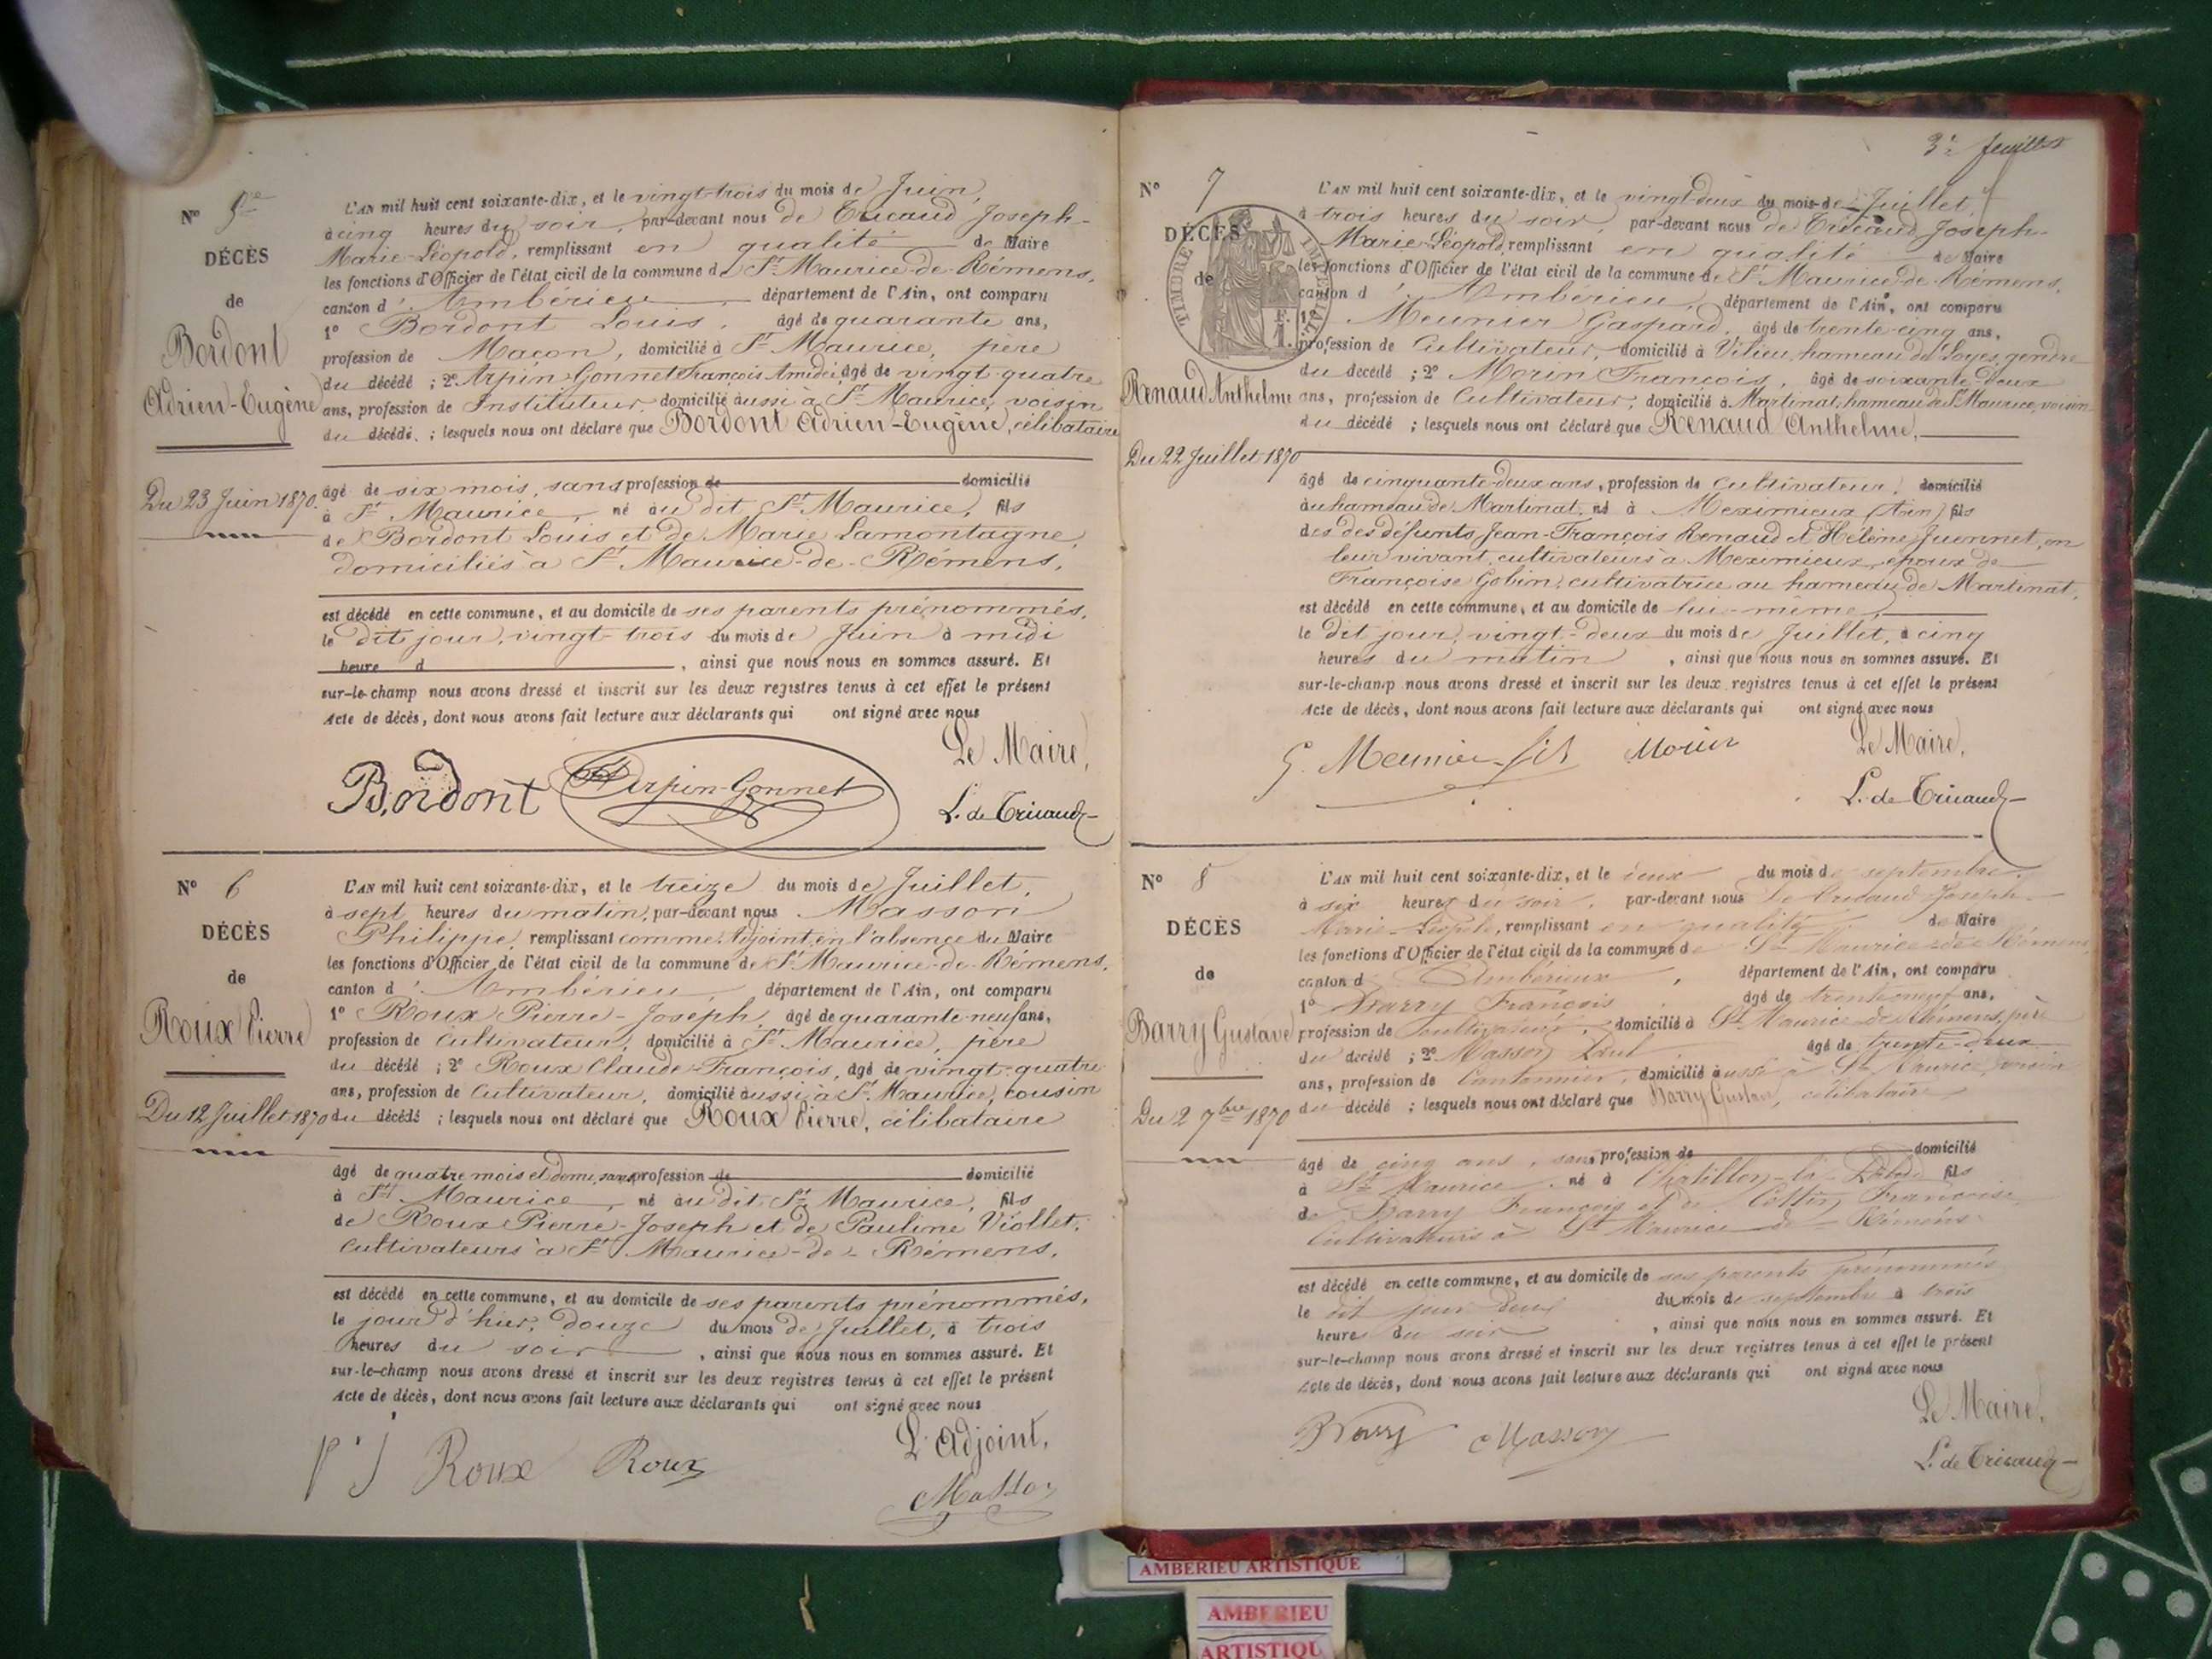 Nº 5
DÉCÈS
de
Bordont
Adrien-Eugène
Du 23 Juin 1870.
L'AN mil huit cent soixante-dix, et le vingt-trois du mois de Juin,
à cinq heures du soir, par-devant nous de Tricaud Joseph-
Marie-Léopold, remplissant en qualité de Maire
les fonctions d'Officier de l'état civil de la commune de St Maurice-de-Rémens,
canton d'Ambérieu, département de l'Ain, ont comparu
1º Bordont Louis, âgé de quarante ans,
profession de Maçon, domicilié à St Maurice, père
du décédé ; 2º Arpin-Gonnet François Amédée, âgé de vingt-quatre
ans, profession de Instituteur, domicilié aussi à St Maurice, voisin
du décédé ; lesquels nous ont déclaré que Bordont Adrien-Eugène, célibataire
âgé de six mois, sans profession de domicilié
à St Maurice, né au dit St Maurice, fils
de Bordont Louis et de Marie Lamontagne,
domiciliés à St Maurice-de-Rémens,
est décédé en cette commune, et au domicile de ses parents prénommés,
le dit jour, vingt-trois du mois de Juin à midi
heure d , ainsi que nous nous en sommes assuré. Et
sur-le-champ nous avons dressé et inscrit sur les deux registres tenus à cet effet le présent
Acte de décès, dont nous avons fait lecture aux déclarants qui ont signé avec nous
Le Maire,
Bordont Arpin-Gonnet L. de Tricaud
Nº 6
DÉCÈS
de
Roux Pierre
Du 12 Juillet 1870
L'AN mil huit cent soixante-dix, et le treize du mois de Juillet,
à sept heures du matin, par-devant nous Masson
Philippe, remplissant comme Adjoint, en l'absence du Maire
les fonctions d'Officier de l'état civil de la commune de St Maurice-de-Rémens,
canton d'Ambérieu, département de l'Ain, ont comparu
1º Roux Pierre-Joseph, âgé de quarante-neuf ans,
profession de Cultivateur, domicilié à St Maurice, père
du décédé ; 2º Roux Claude-François, âgé de vingt-quatre
ans, profession de Cultivateur, domicilié aussi à St Maurice, cousin
du décédé ; lesquels nous ont déclaré que Roux Pierre, célibataire
âgé de quatre mois et demi, sans profession de domicilié
à St Maurice, né au dit St Maurice, fils
de Roux Pierre-Joseph et de Pauline Viollet,
Cultivateurs à St Maurice-de-Rémens,
est décédé en cette commune, et au domicile de ses parents prénommés,
le jour d'hier, douze du mois de Juillet, à trois
heures du soir, ainsi que nous nous en sommes assuré. Et
sur-le-champ nous avons dressé et inscrit sur les deux registres tenus à cet effet le présent
Acte de décès, dont nous avons fait lecture aux déclarants qui ont signé avec nous
L'Adjoint,
P J Roux Roux Masson
3e feuillet
Nº 7
DÉCÈS
de
TIMBRE IMPÉRIAL
1 F.
Renaud Anthelme
Du 22 Juillet 1870
L'AN mil huit cent soixante-dix, et le vingt-deux du mois de Juillet,
à trois heures du soir, par-devant nous de Tricaud Joseph-
Marie-Léopold, remplissant en qualité de Maire
les fonctions d'Officier de l'état civil de la commune de St Maurice-de-Rémens,
canton d'Ambérieu, département de l'Ain, ont comparu
1º Meunier Gaspard, âgé de trente-cinq ans,
profession de Cultivateur, domicilié à Vilieu, hameau de Loyes, gendre
du décédé ; 2º Morin François, âgé de soixante-deux
ans, profession de Cultivateur, domicilié à Martinat, hameau de St Maurice, voisin
du décédé ; lesquels nous ont déclaré que Renaud Anthelme,
âgé de cinquante-deux ans, profession de Cultivateur, domicilié
au hameau de Martinat, né à Meximieux (Ain) fils
des des défunts Jean-François Renaud et Hélène Juennet, en
leur vivant, cultivateurs à Meximieux, époux de
Françoise Gobin, cultivatrice au hameau de Martinat,
est décédé en cette commune, et au domicile de lui-même,
le dit jour, vingt-deux du mois de Juillet, à cinq
heures du matin, ainsi que nous nous en sommes assuré. Et
sur-le-champ nous avons dressé et inscrit sur les deux registres tenus à cet effet le présent
Acte de décès, dont nous avons fait lecture aux déclarants qui ont signé avec nous
G. Meunier fils Morin Le Maire,
L. de Tricaud
Nº 8
DÉCÈS
de
Barry Gustave
Du 2 7bre 1870
L'AN mil huit cent soixante-dix, et le deux du mois de septembre,
à six heures du soir, par-devant nous de Tricaud Joseph-
Marie-Léopold, remplissant en qualité de Maire
les fonctions d'Officier de l'état civil de la commune de St Maurice-de-Rémens,
canton d'Ambérieux, département de l'Ain, ont comparu
1º Barry François âgé de trente-neuf ans,
profession de cultivateur, domicilié à St Maurice-de-Rémens, père
du décédé ; 2º Masson âgé de trente-deux
ans, profession de Cantonnier, domicilié aussi à St Maurice, voisin
du décédé ; lesquels nous ont déclaré que Barry Gustave, célibataire
âgé de cinq ans, sans profession de domicilié
à St Maurice, né à Châtillon-la-Palud fils
de Barry François et de Françoise
Cultivateurs à St Maurice-de-Rémens
est décédé en cette commune, et au domicile de ses parents prénommés
le dit jour deux du mois de septembre à trois
heures du soir, ainsi que nous nous en sommes assuré. Et
sur-le-champ nous avons dressé et inscrit sur les deux registres tenus à cet effet le présent
Acte de décès, dont nous avons fait lecture aux déclarants qui ont signé avec nous
Le Maire,
Barry Masson L. de Tricaud
AMBERIEU ARTISTIQUE
AMBERIEU
ARTISTIQU